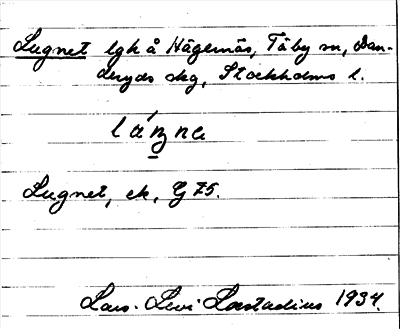 Lugnet lgh å Hägernäs, Täby sn, Dan-
deryds skg, Stockholms l.
Lugnet, ek, G 75.
Lars-Levi Læstadius 1934.